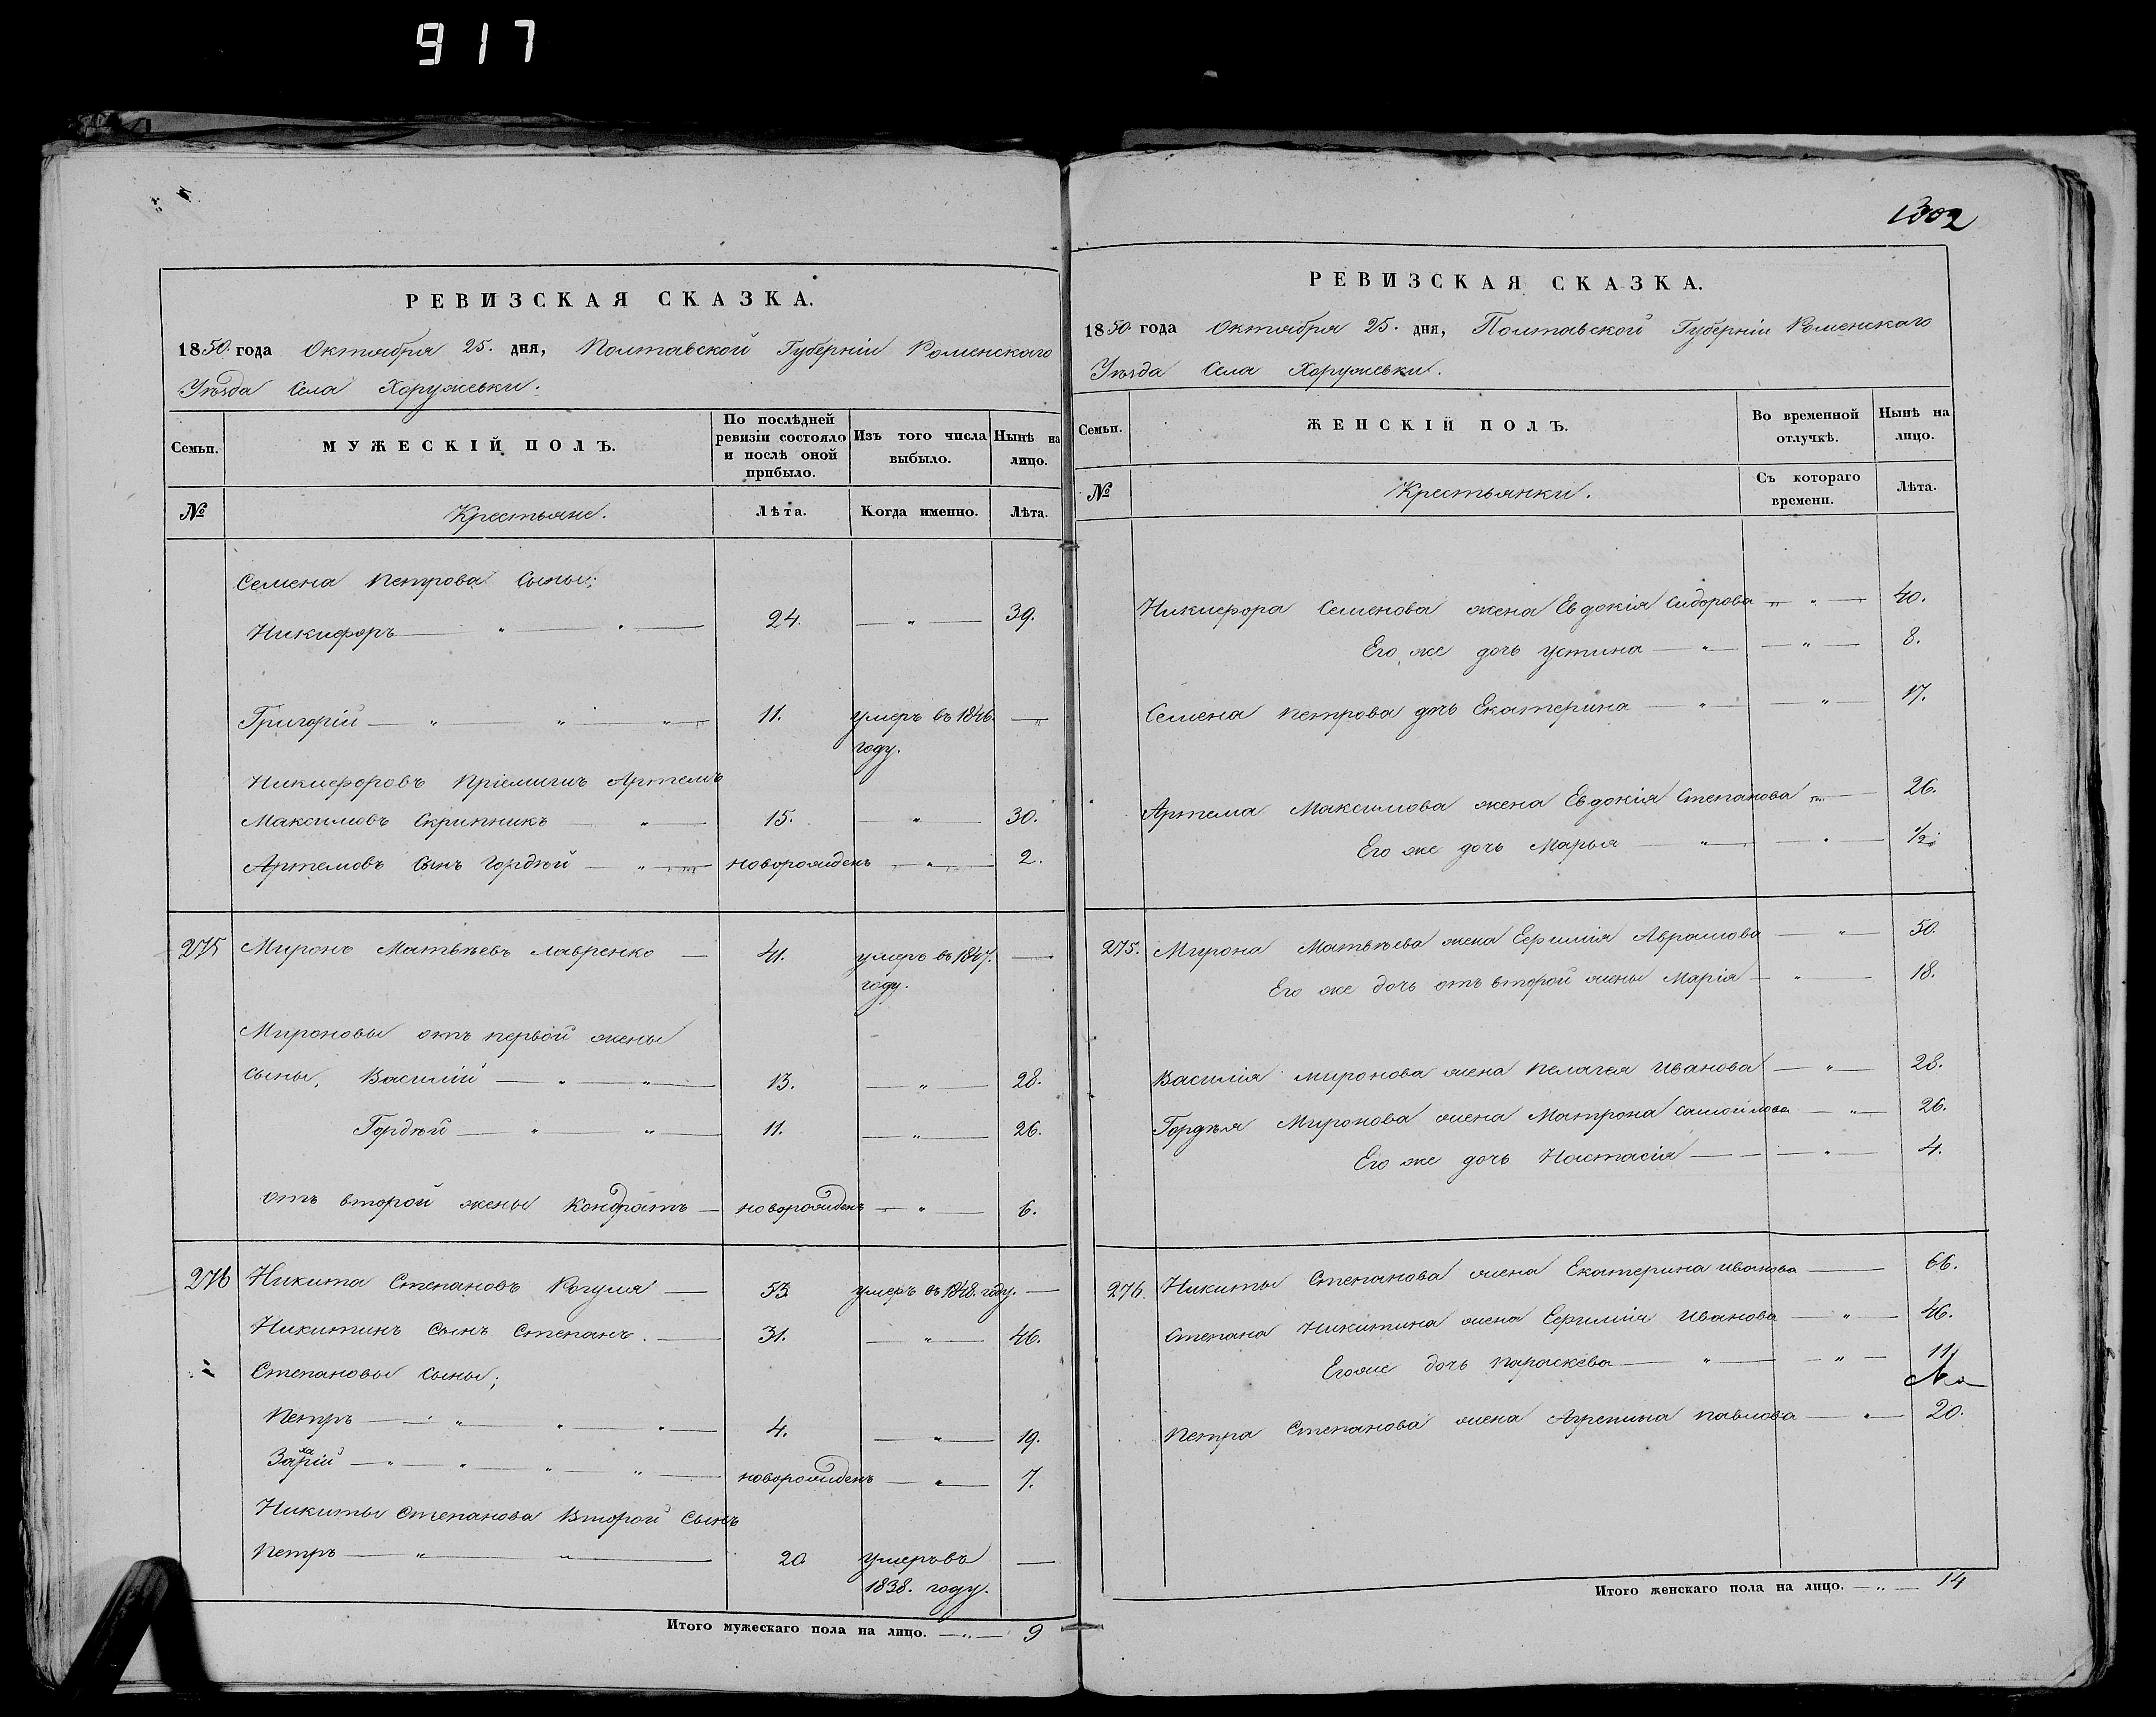 917
РЕВИЗСКАЯ СКАЗКА.
1850. года Октября 25. дня, Полтавской Губерніи Роменскаго
Уѣзда Села Хоружевки.
Семьи. МУЖЕСКІЙ ПОЛЪ. По послѣдней ревизіи состояло и послѣ оной прибыло. Изъ того числа выбыло. Нынѣ на лицо.
№ Крестьяне. Лѣта. Когда именно. Лѣта.
Семена Петрова Сыны;
Никифоръ — „ — „ — 24. — „ — 39.
Григорій — „ — „ — „ — 11. умеръ въ 1846. —
году.
Никифоровъ Пріемышъ Артемъ
Максимовъ Скрипникъ — „ — 15. — „ — 30.
Артемовъ Сынъ Гордѣй — „ — новорожденъ — „ — 2.
275 Миронъ Матвѣевъ Лавренко — 41. умеръ въ 1847. —
году.
Мироновы отъ первой жены
сыны, Василій — „ — „ — 13. — „ — 28.
Гордѣй — „ — „ — 11. — „ — 26.
отъ второй жены Кондратъ — новорожденъ — „ — 6.
276 Никита Степановъ Рогуля — 53 умеръ въ 1848. году. —
Никитинъ Сынъ Степанъ. — 31. — „ — 46.
Степановы Сыны;
Петръ — „ — „ — „ — 4. — „ — 19.
Захарій — „ — „ — „ — „ — новорожденъ — „ — 7.
Никиты Степанова Второй Сынъ
Петръ — „ — „ — 20 умеръ въ —
1838. году.
Итого мужескаго пола на лицо. — „ — 9
1302
РЕВИЗСКАЯ СКАЗКА.
1850. года Октября 25. дня, Полтавской Губерніи Роменскаго
Уѣзда Села Хоружевки.
Семьи. ЖЕНСКІЙ ПОЛЪ. Во временной отлучкѣ. Нынѣ на лицо.
№ Крестьянки. Съ котораго времени. Лѣта.
Никифора Семенова жена Евдокія Сидорова — „ — 40.
Его же дочь Устина — „ — „ — 8.
Семена Петрова дочь Екатерина — „ — „ — 17.
Артема Максимова жена Евдокія Степанова — „ — 26.
Его же дочь Марья — „ — „ — 1/2
275. Мирона Матвѣева жена Ефимія Абрамова — „ — 50.
Его же дочь отъ второй жены Марія — „ — 18.
Василія Миронова жена Пелагея Иванова — „ — 28.
Гордѣя Миронова жена Матрона Самойлова — „ — 26.
Его же дочь Настасія — „ — 4.
276. Никиты Степанова жена Екатерина Иванова — 66.
Степана Никитина жена Ефимія Иванова — „ — 46.
Его же дочь Параскева — „ — „ — 11
Петра Степанова жена Агрепина Павлова — „ — 20.
Итого женскаго пола на лицо. — „ — 14